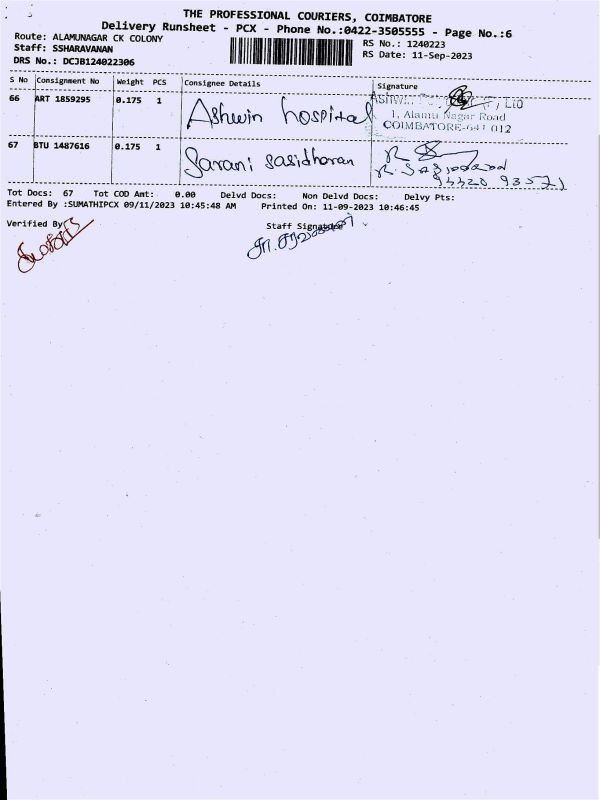 THE PROFESSIONAL COURIERS, COIMBATORE
Delivery Runsheet - PCX - Phone No.:0422-3505555 - Page No.:6
Route: ALAMUNAGAR CK COLONY
RS No.: 1240223
Staff: SSHARAVANAN
RS Date: 11-Sep-2023
DRS No.: DCJB124022306
S No Consignment No Weight PCS Consignee Details Signature
66 ART 1859295 0.175 1 Ashwin hospital
1, Alamu Nagar Road
COIMBATORE-641 012
67 BTU 1487616 0.175 1 Sarani sasidharan
Tot Docs: 67 Tot COD Amt: 0.00 Delvd Docs: Non Delvd Docs: Delvy Pts:
Entered By :SUMATHIPCX 09/11/2023 10:45:48 AM Printed On: 11-09-2023 10:46:45
Verified By
Staff Signature